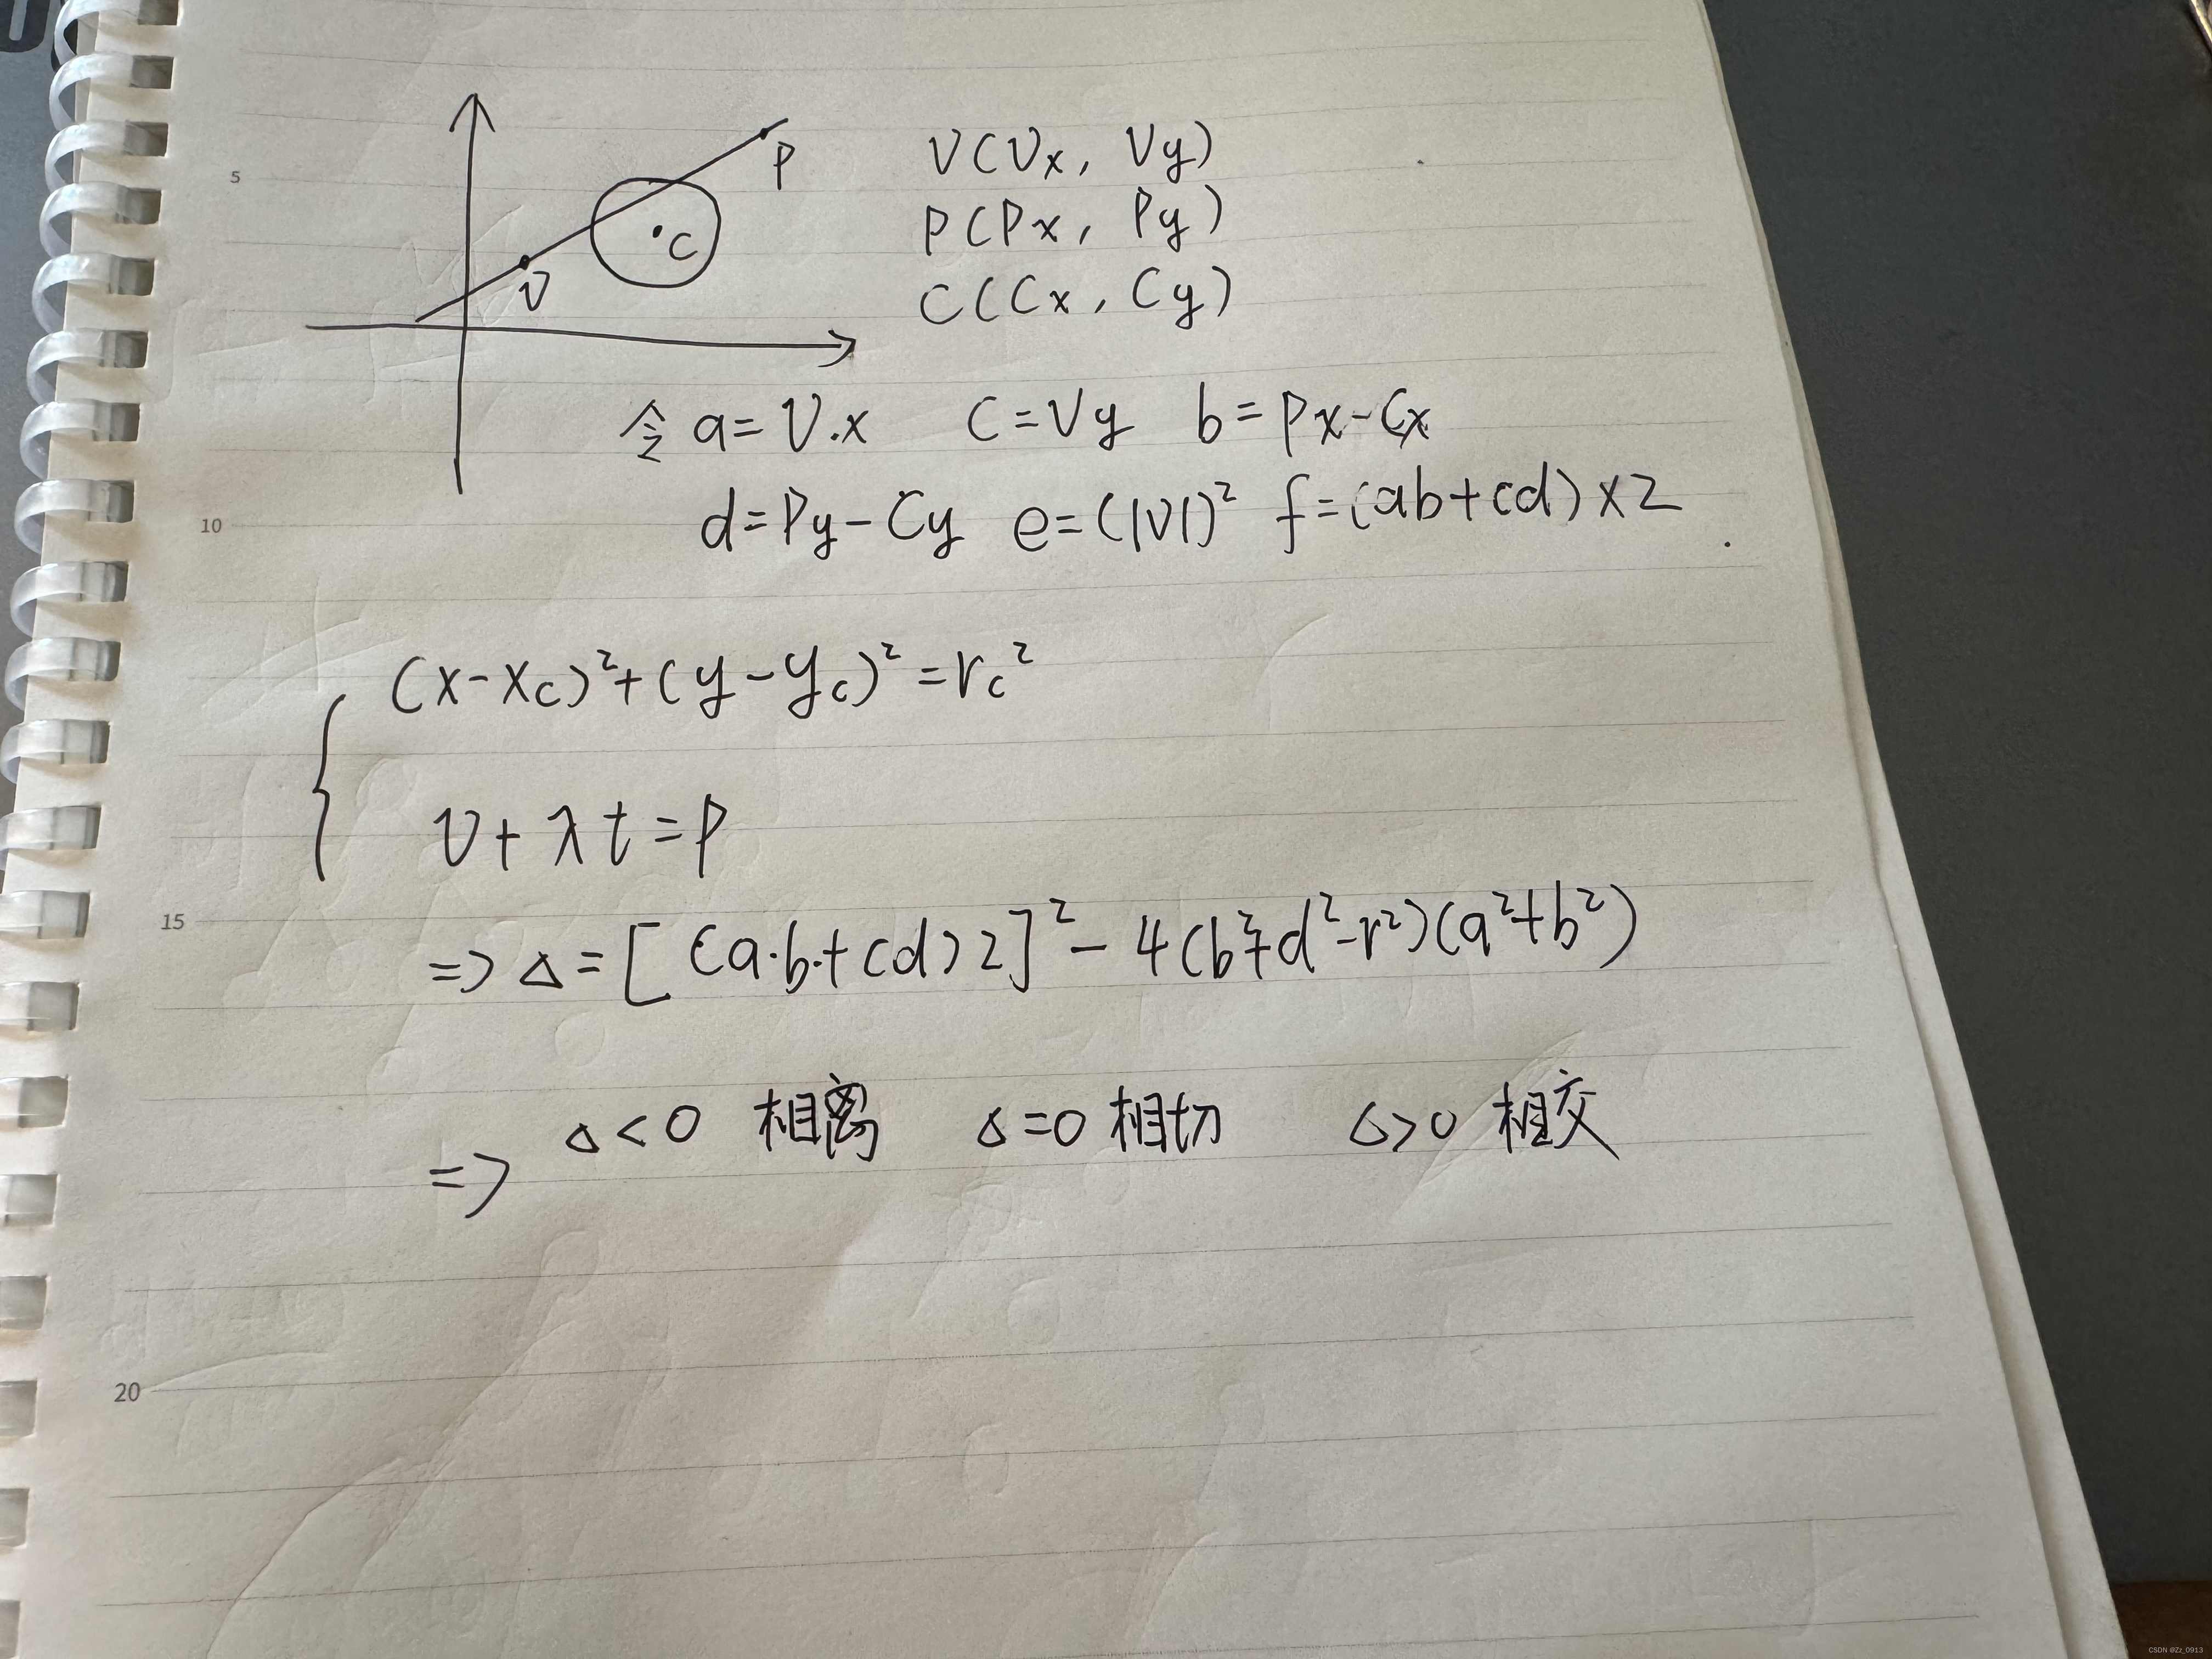 P
C
V
V(Vx, Vy)
P(Px, Py)
C(Cx, Cy)
令 a=V.x C=Vy b=Px-Cx
d=Py-Cy e=(|V|)² f=(ab+cd)×2
5
10
(x-xc)²+(y-yc)²=rc²
V+λt=P
15
=> Δ=[(a·b+cd)2]²-4(b²+d²-r²)(a²+b²)
=> Δ<0 相离 Δ=0 相切 Δ>0 相交
20
CSDN @Zz_0913